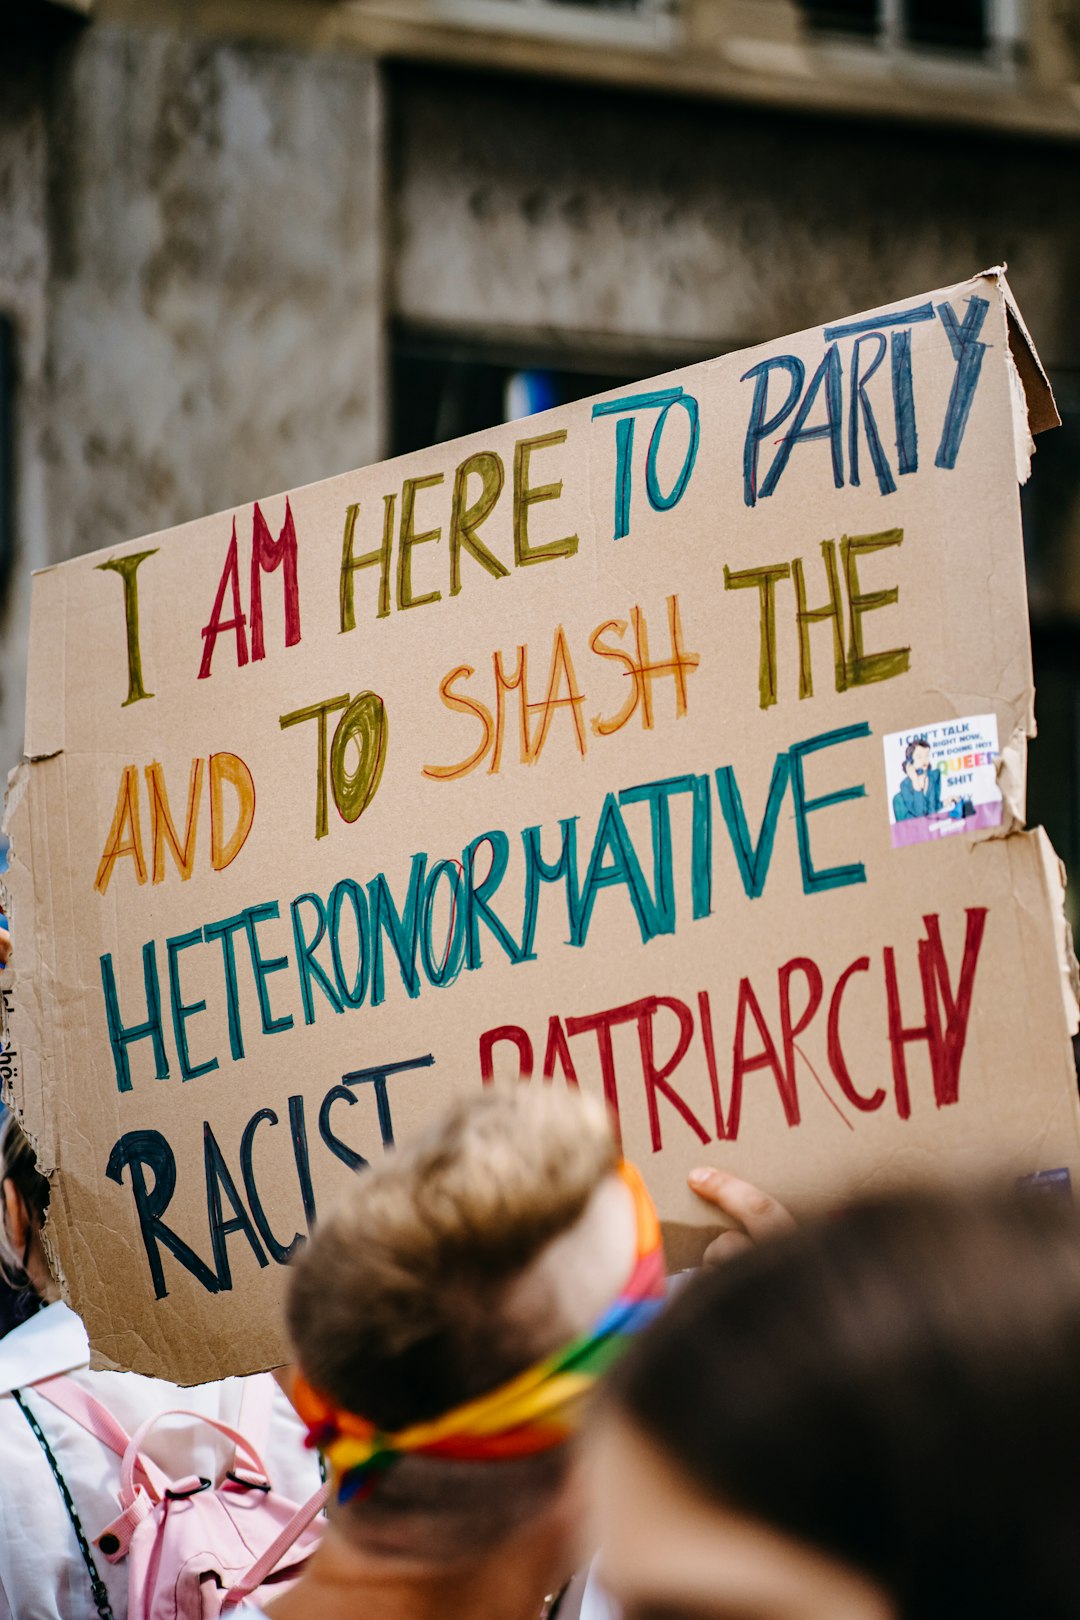 I AM HERE TO PARTY
AND TO SMASH THE
HETERONORMATIVE
RACIST PATRIARCHY
I CAN'T TALK
RIGHT NOW,
I'M DOING HOT
QUEER
SHIT